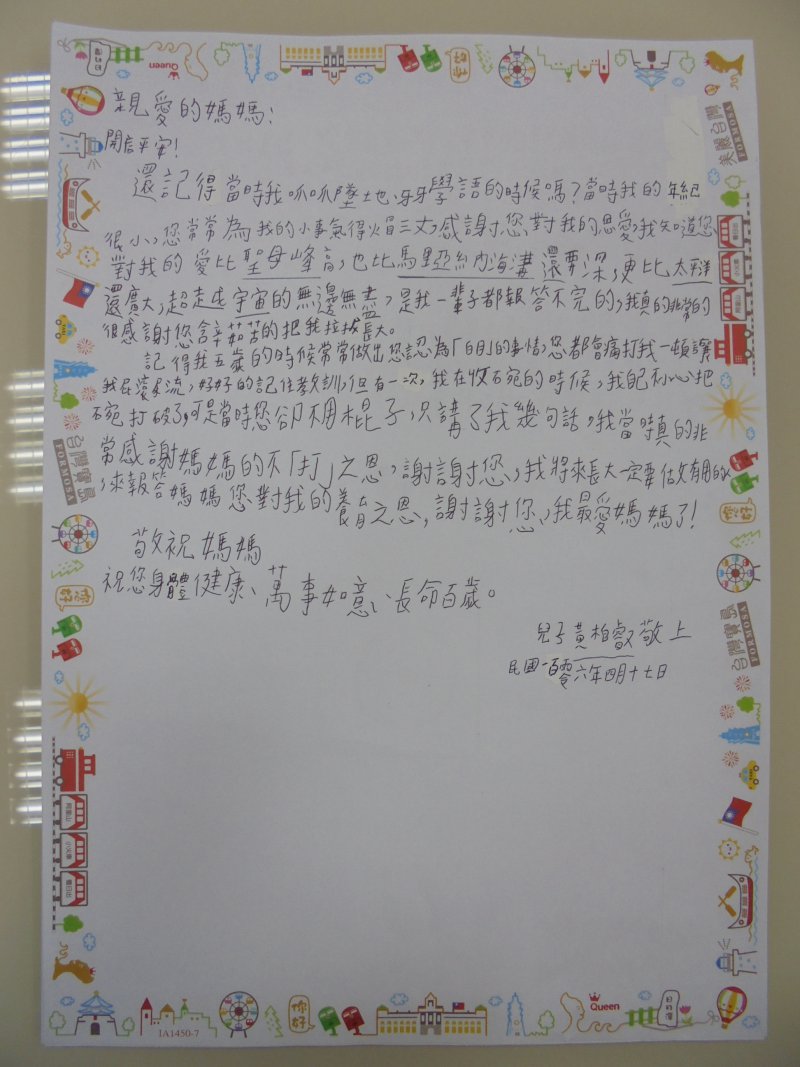 Queen
你好
親愛的媽媽：
開啟平安！
還記得當時我呱呱墜地、牙牙學語的時候嗎？當時我的年紀
很小，您常常為我的小事氣得火冒三丈，感謝您對我的恩愛，我知道您
對我的愛比聖母峰高，也比馬里亞納海溝還要深，更比太平洋
還廣大，超走出宇宙的無邊無盡，是我一輩子都報答不完的，我真的非常的
很感謝您含辛茹苦的把我拉拔長大。
記得我五歲的時候常常做出您認為「白目」的事情，您都會痛打我一頓讓
我屁滾尿流，好好的記住教訓，但有一次，我在收碗的時候，我不小心把
碗打破了，可是當時您卻不用棍子，只講了我幾句話，我當時真的非
常感謝媽媽的不「打」之恩，謝謝您，我將來長大一定要做女有用的人
，來報答媽媽您對我的養育之恩，謝謝您，我最愛媽媽了！
敬祝 媽媽
祝您身體健康、萬事如意、長命百歲。
兒子黃柏叡敬上
民國一百零六年四月十七日
美麗台灣
FORMOSA
台灣寶島
FORMOSA
你好
台灣寶島
FORMOSA
阿里山
小火車
看日出
IA1450-7
你好
Queen